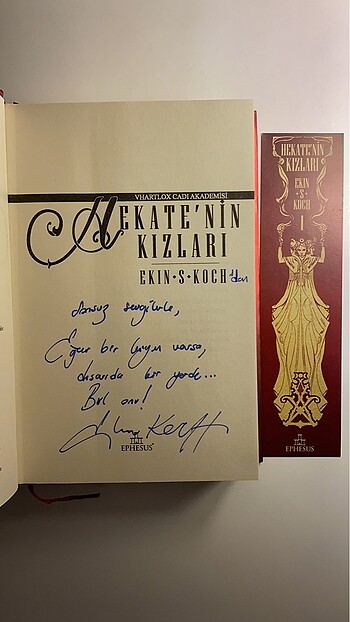 VHARTLOX CADI AKADEMİSİ
HEKATE'NİN
KIZLARI
EKIN • S • KOCH'dan
sonsuz sevgilerle,
Eğer bir büyün varsa,
dışarıda bir yerde...
Bul onu!
EPHESUS
HEKATE'NİN
KIZLARI
EKIN
• S •
KOCH
I
EPHESUS